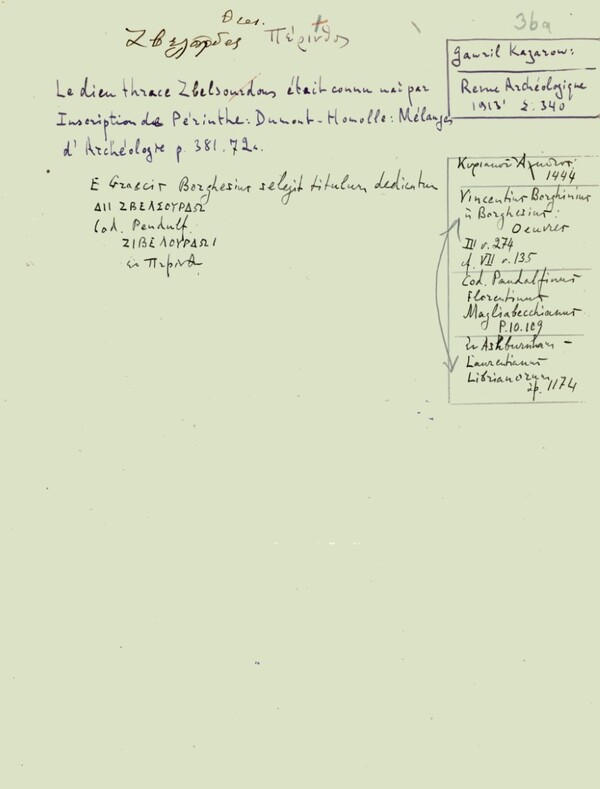 36a
Ζβελσούρδος Πέρινθος
Gawril Kazarow:
Revue Archéologique
1913' Σ. 340
Le dieu thrace Zbelsourdous était connu par
Inscription de Périnthe: Dumont-Homolle: Mélanges
d'Archéologie p. 381. 72c.
E Graecis Borghesius selegit titulum dedicatum
ΔΙΙ ΖΒΕΛΣΟΥΡΔΩ
Cod. Pendulf.
ΖΙΒΕΛΟΥΡΔΩΙ
ἐν Περίνθ
Κυριακοῦ
1444
Vincentius Borghinius
Borghesius:
Oeuvres
III σ. 274
cf. VII σ. 135
Cod. Pandalfinus
Florentinus
Magliabecchianus
P. 10. 109
ἐν Ashburnham -
Laurentianus
Librianorum
ἀρ. 1174